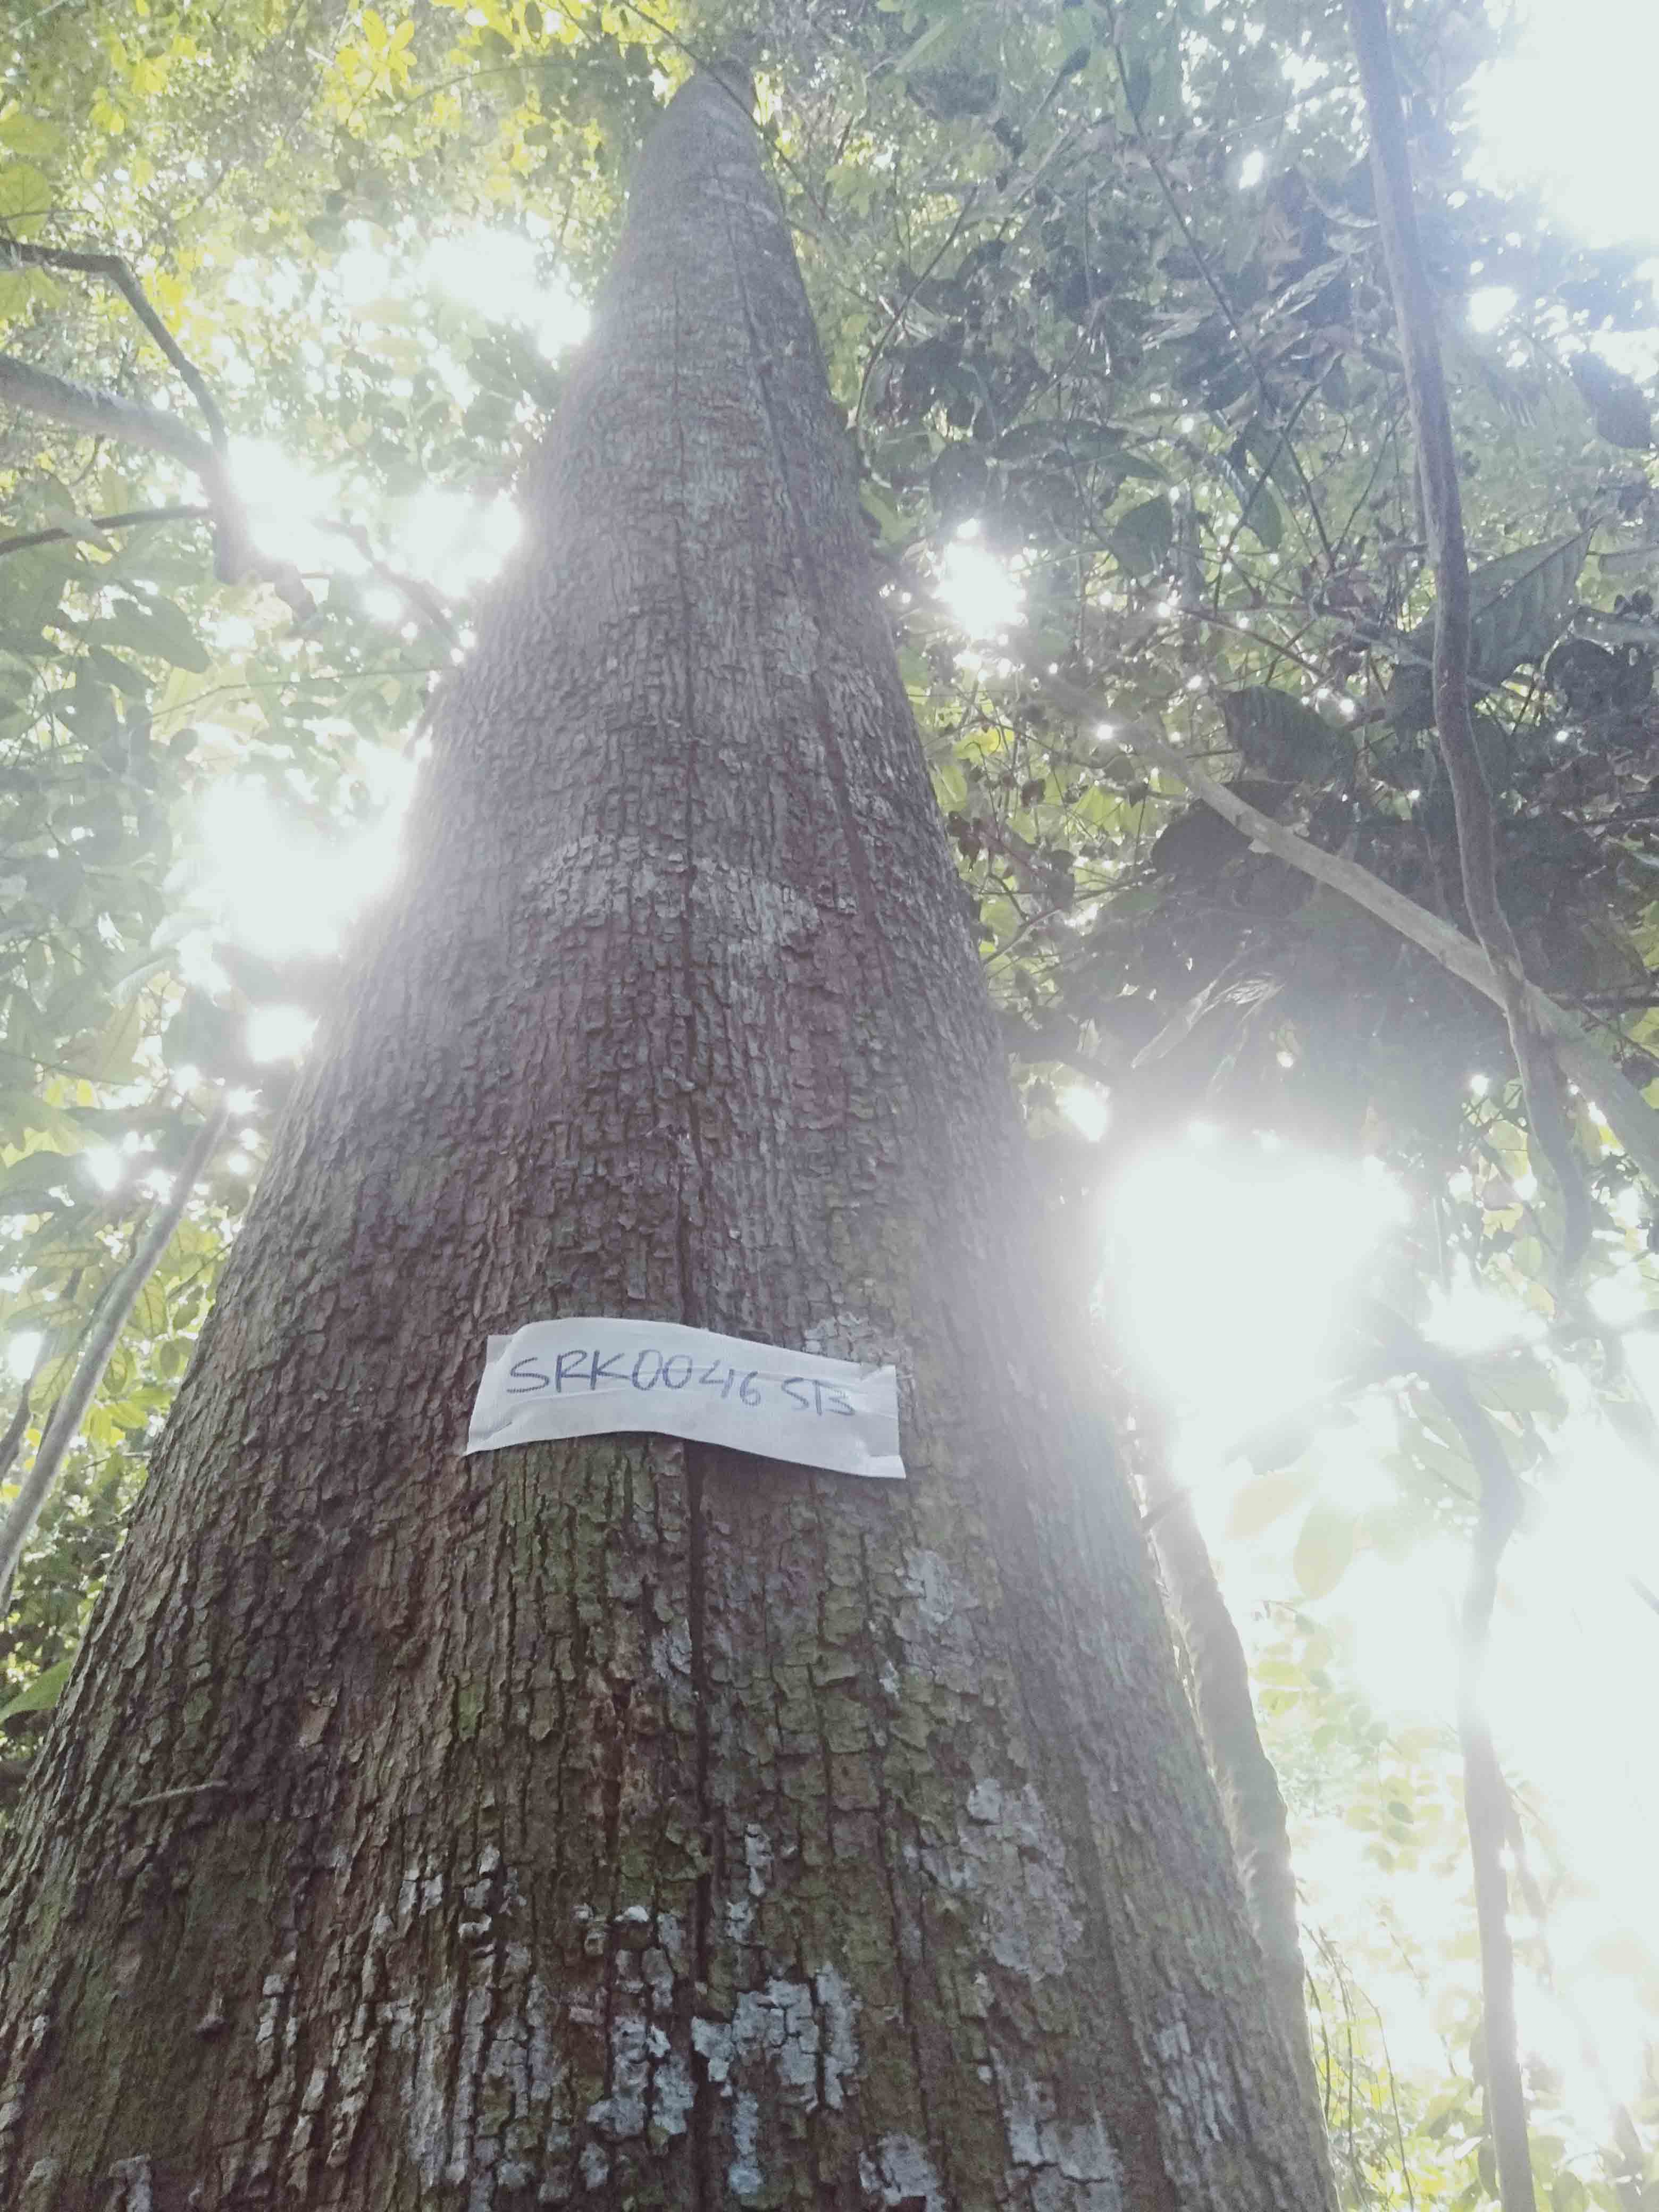 SRK0046 STB